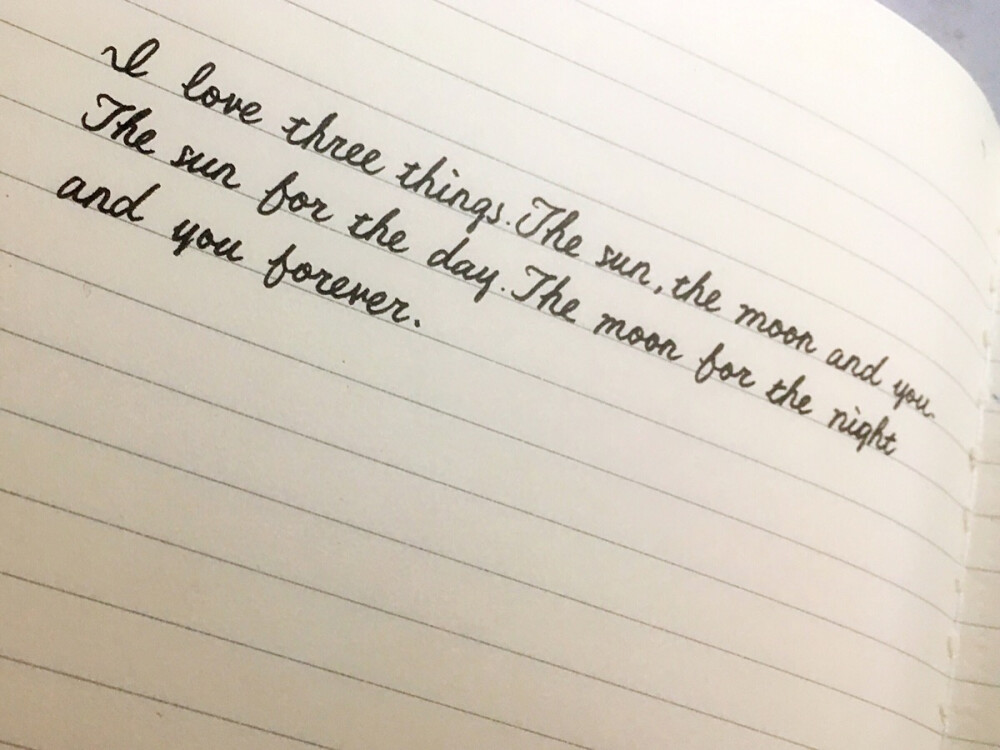 I love three things. The sun, the moon and you.
The sun for the day. The moon for the night
and you forever.